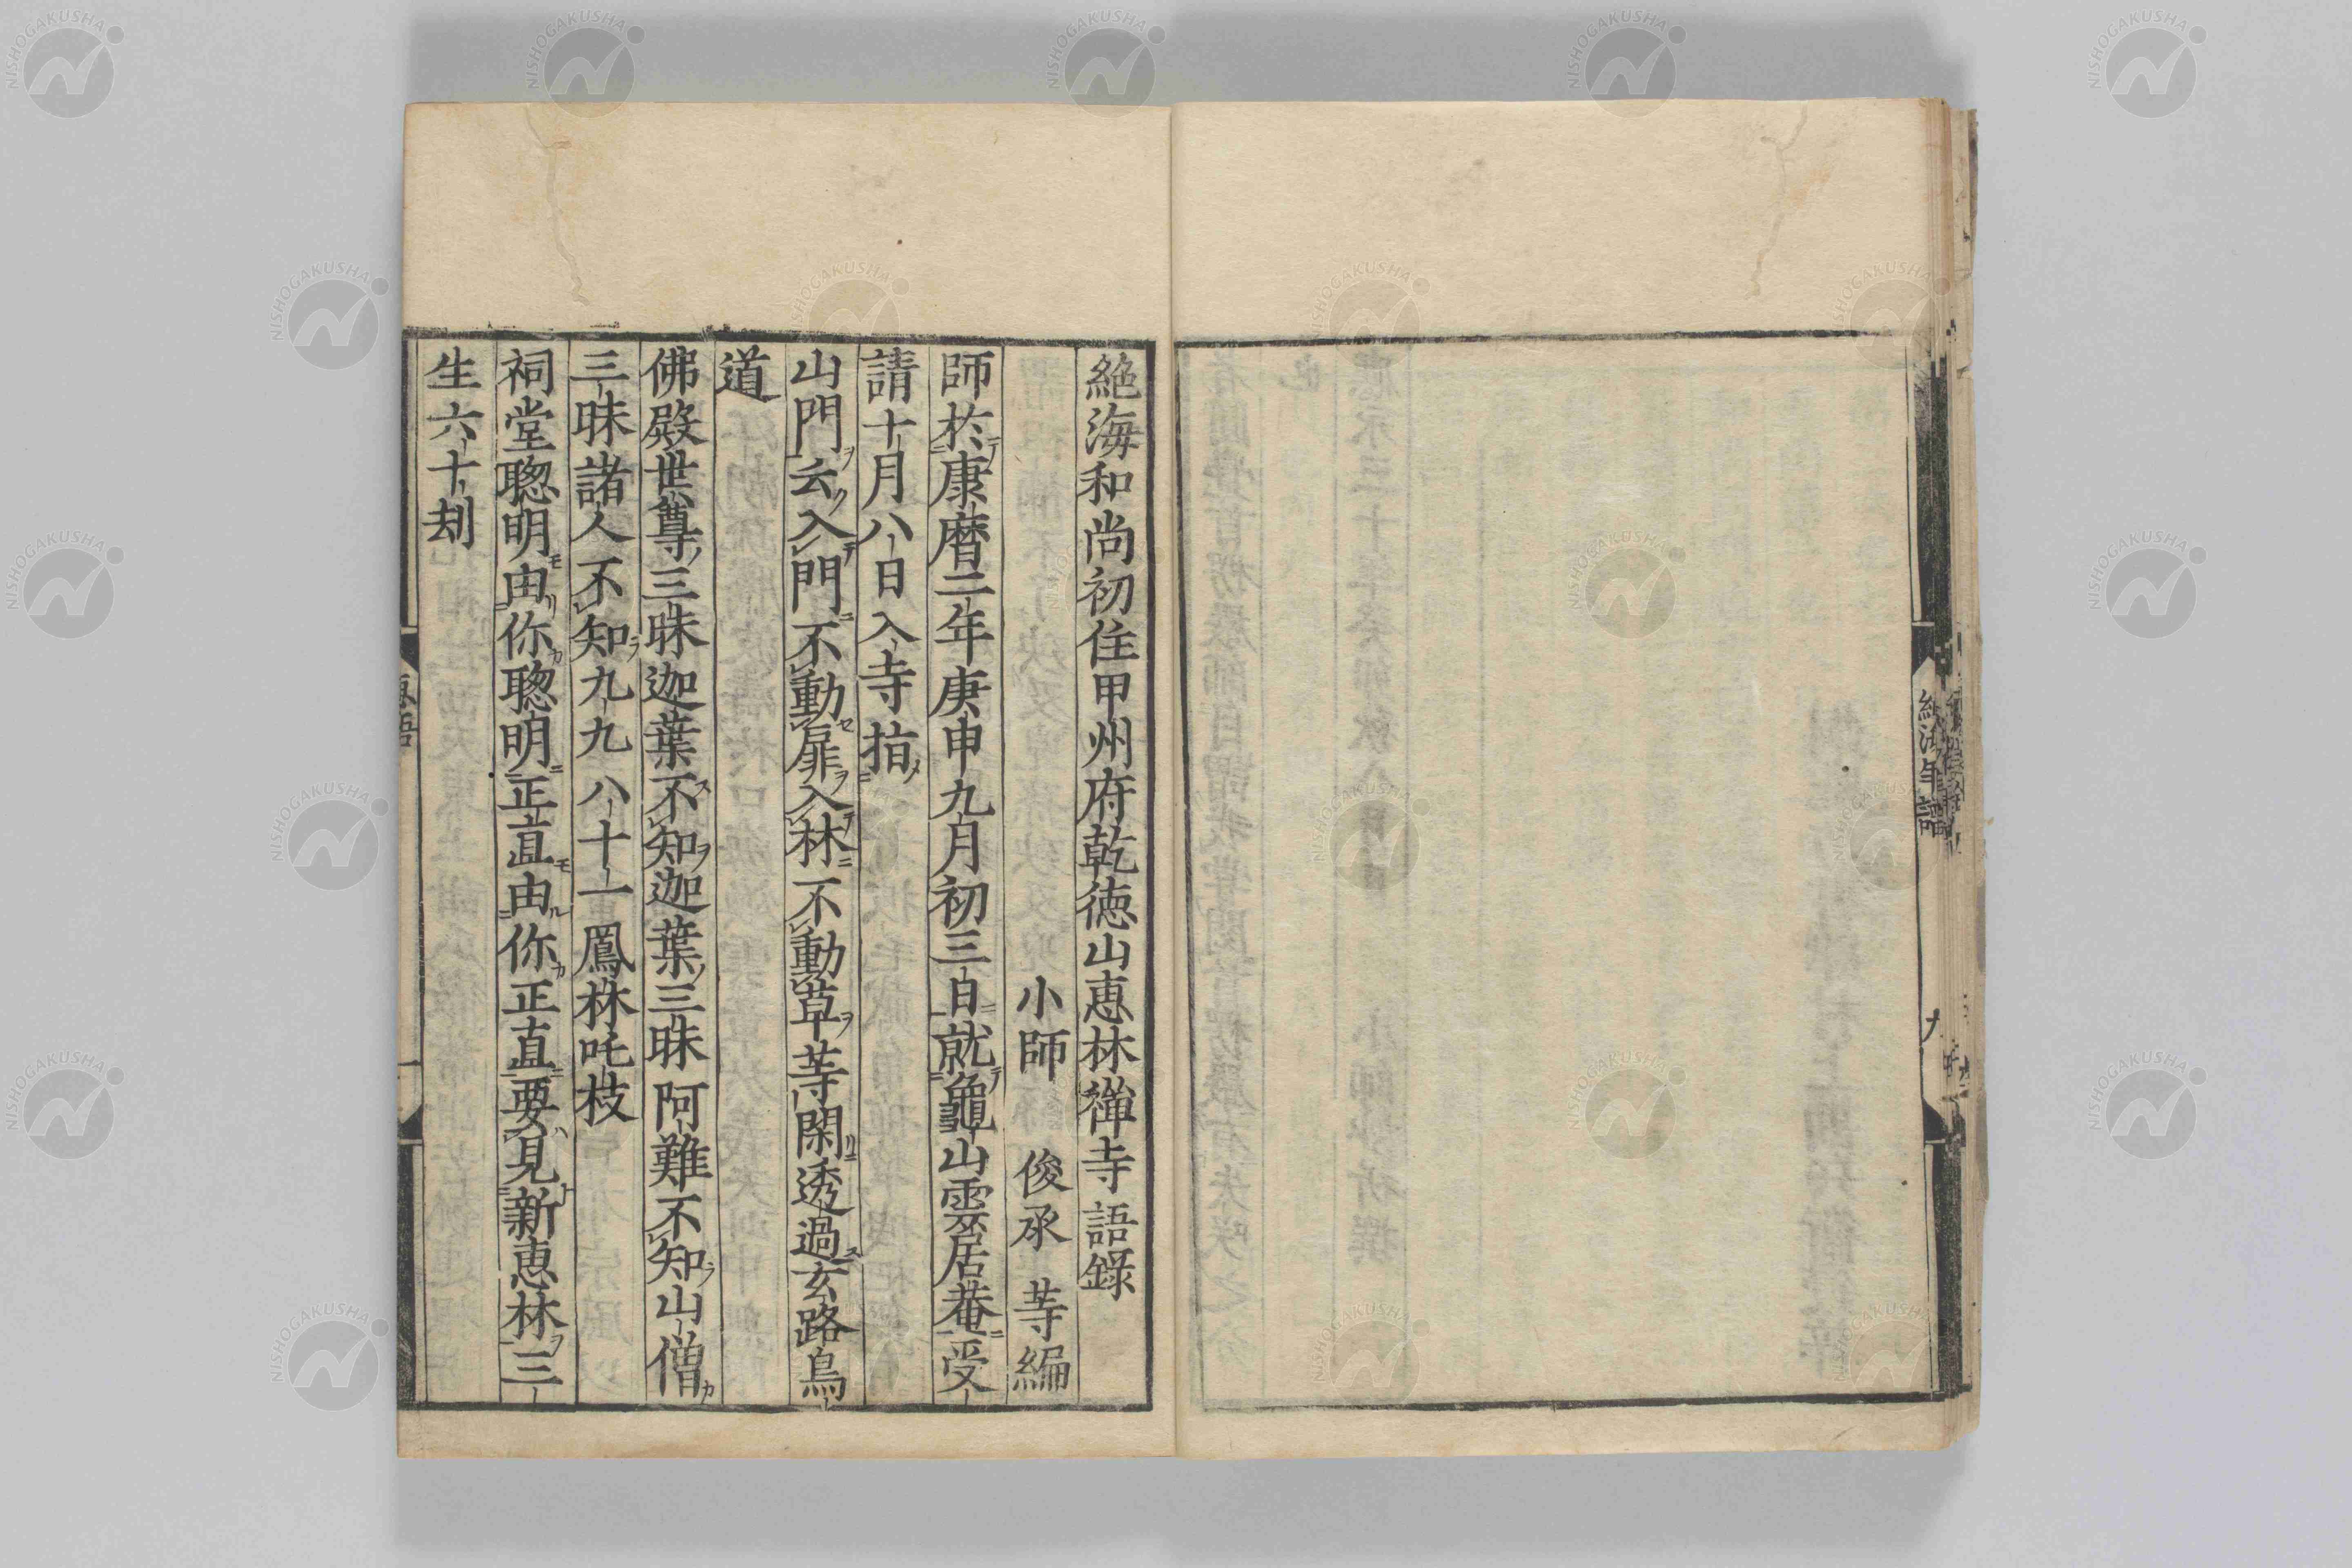 絶海年譜
九
絶海和尚初住甲州府乾徳山恵林禅寺語録
小師 俊承 等編
師於康暦二年庚申九月初三日就龜山雲居菴受
請十月八日入寺指
山門云入門不動扉入林不動草等閑透過玄路鳥
道
佛殿世尊三昧迦葉不知迦葉三昧阿難不知山僧
三昧諸人不知九九八十一鳳林吒枝
祠堂聦明由你聦明正直由你正直要見新恵林三
生六十刧
NISHOGAKUSHA